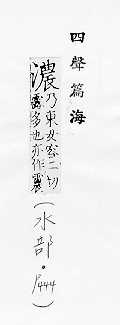 四聲篇海
濃乃東女容二切
露多也亦作震
(水部·P444)